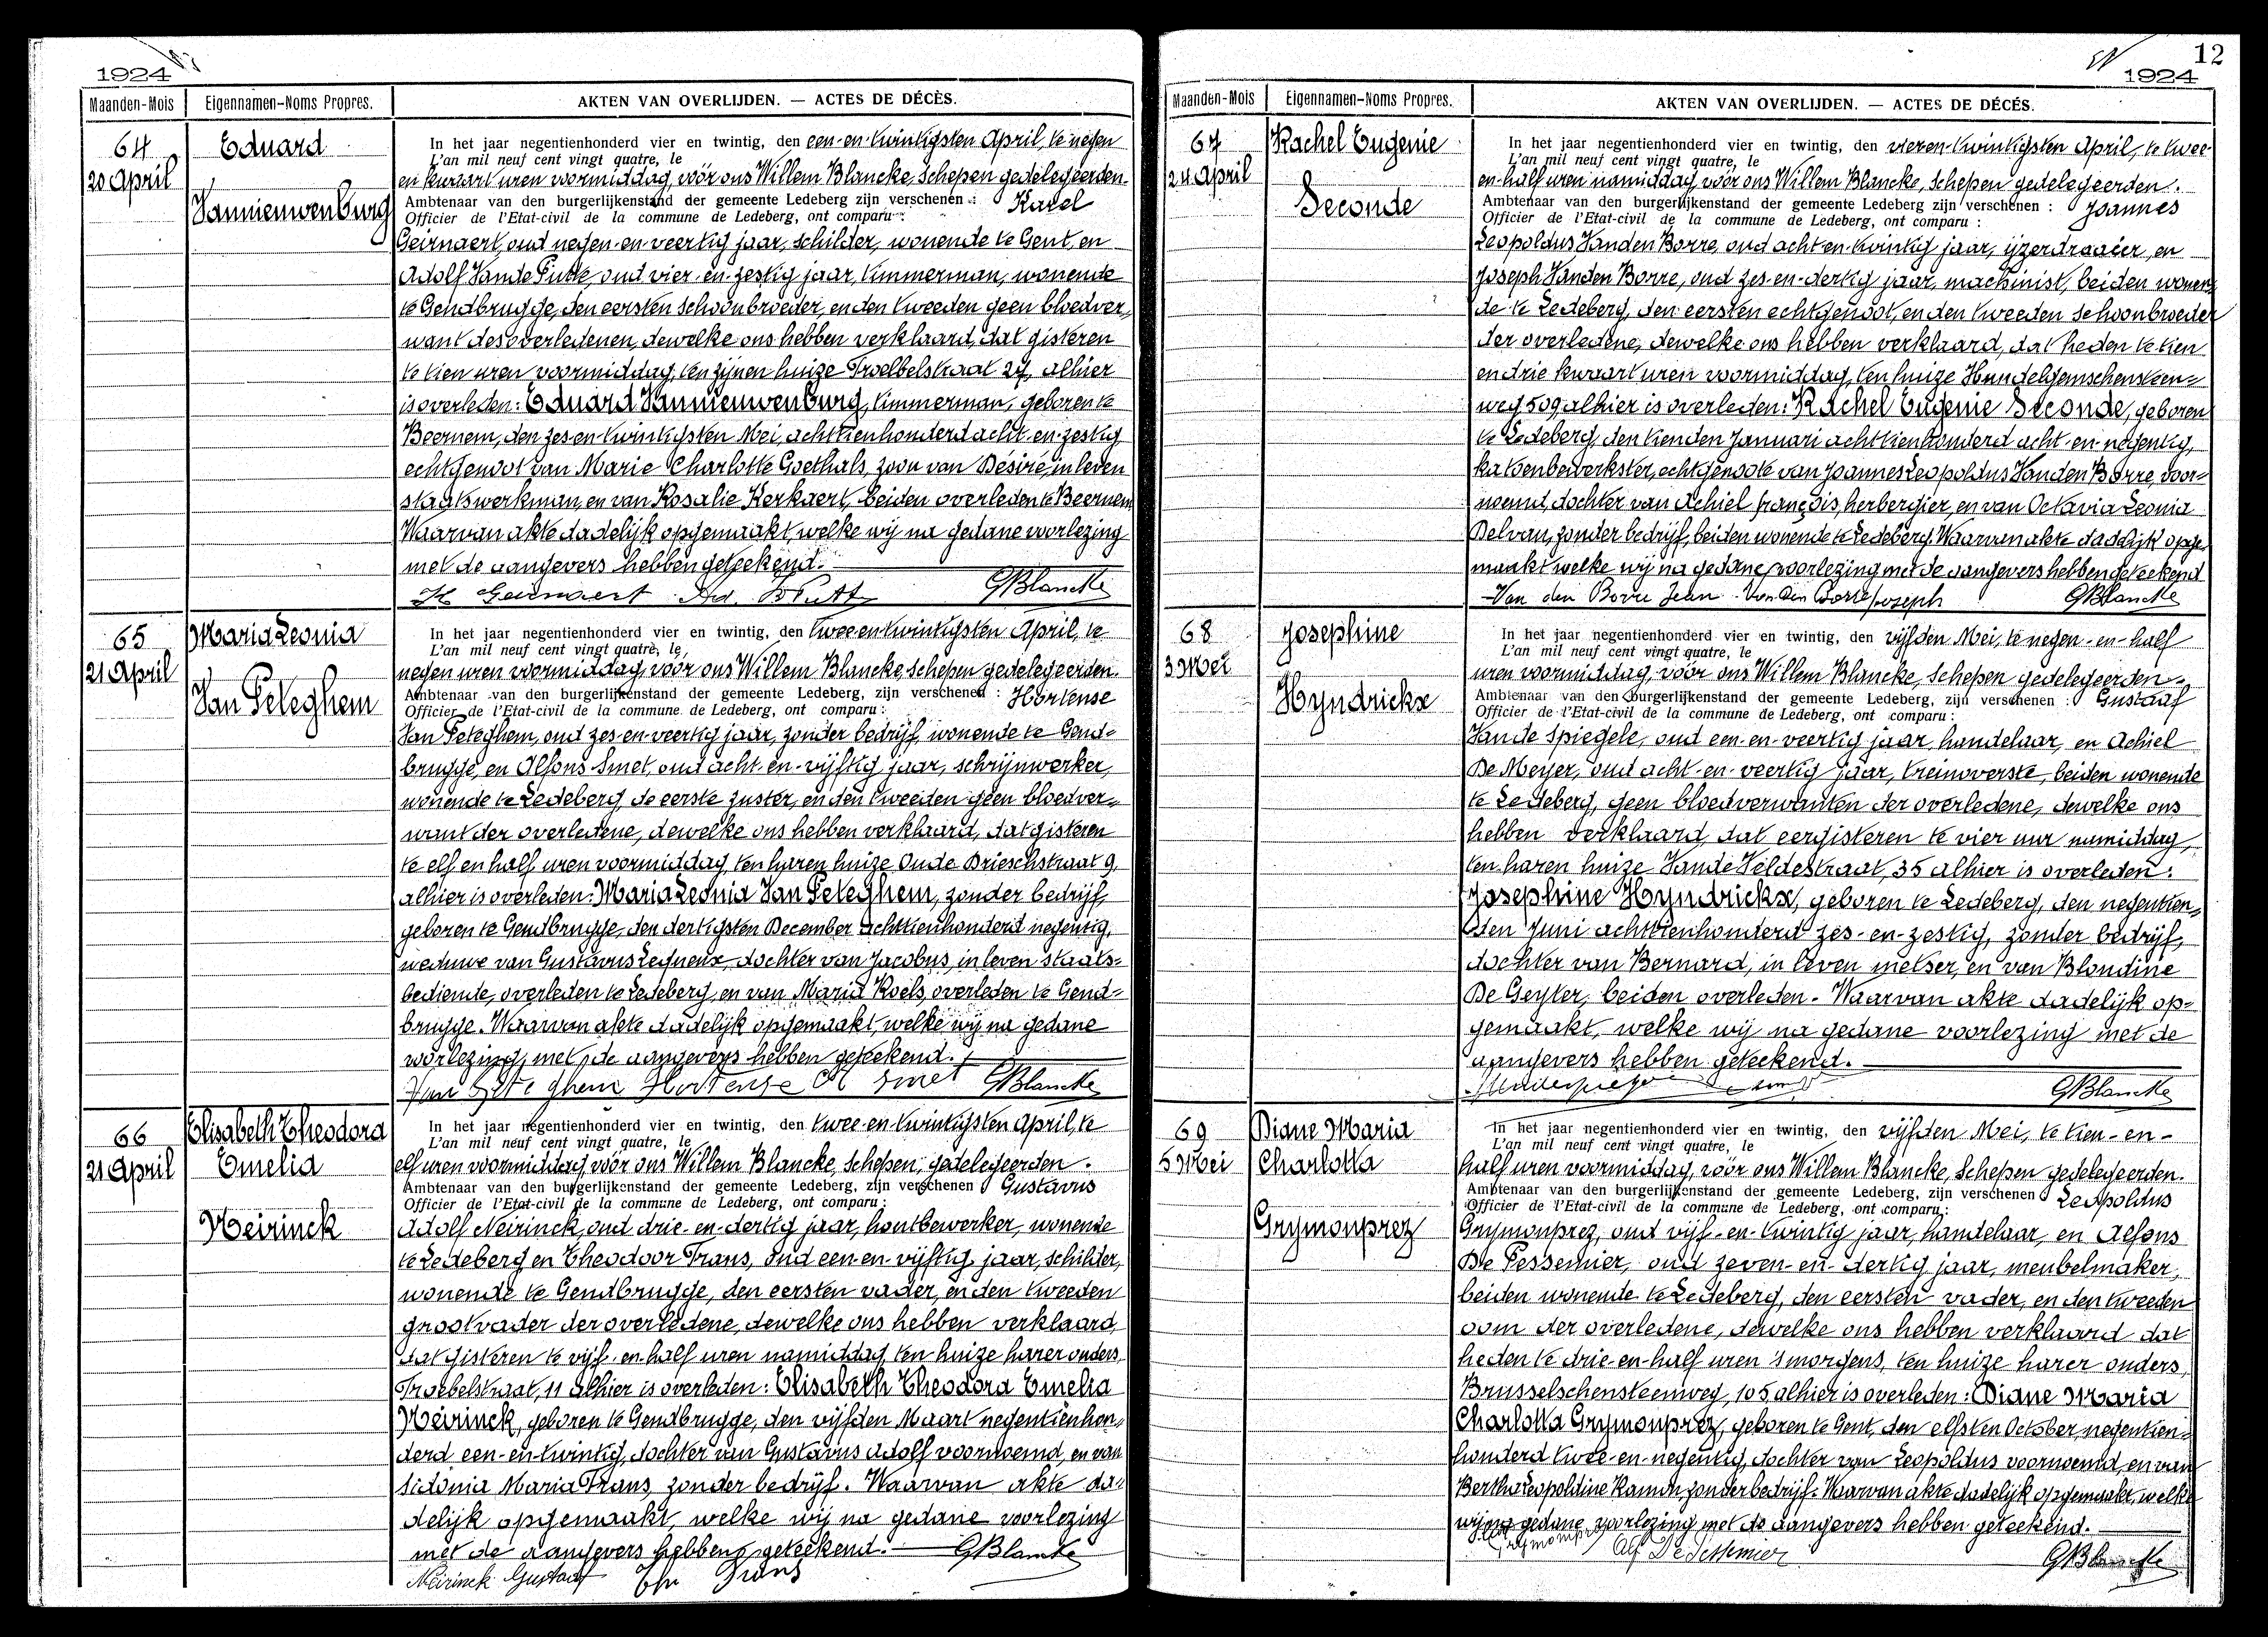 1924
Maanden-Mois Eigennamen-Noms Propres. AKTEN VAN OVERLIJDEN. — ACTES DE DÉCÈS.
64
20 April
Eduard
Vannieuwenburg
In het jaar negentienhonderd vier en twintig, den een-en-twintigsten April, te negen
L'an mil neuf cent vingt quatre, le
en kwaart uren voormiddag, vóór ons Willem Blancke, Schepen gedelegeerden
Ambtenaar van den burgerlijkenstand der gemeente Ledeberg zijn verschenen : Karel
Officier de l'Etat-civil de la commune de Ledeberg, ont comparu :
Geirnaert, oud negen-en-veertig jaar, schilder, wonende te Gent, en
Adolf Vande Putte, oud vier-en-zestig jaar, timmerman, wonende
te Gendbrugge, den eersten schoonbroeder, en den tweeden geen bloedver„
want des overledenen, dewelke ons hebben verklaard, dat gisteren
te tien uren voormiddag, ten zijnen huize Froebelstraat 27, alhier
is overleden: Eduard Vannieuwenburg, timmerman, geboren te
Beernem, den zes-en-twintigsten Mei, achttienhonderd acht-en-zestig
echtgenoot van Marie Charlotte Goethals, zoon van Désiré, in leven
staatswerkman, en van Rosalie Kerkaert, beiden overleden te Beernem
Waarvan akte dadelijk opgemaakt, welke wij na gedane voorlezing
met de aangevers hebben geteekend.
K Geirnaert Ad. V Putte GBlancke
65
21 April
Maria Leonia
Van Peteghem
In het jaar negentienhonderd vier en twintig, den twee en twintigsten April, te
L'an mil neuf cent vingt quatre, le
negen uren voormiddag, vóór ons Willem Blancke, Schepen gedelegeerden
Ambtenaar van den burgerlijkenstand der gemeente Ledeberg, zijn verschenen : Hortense
Officier de l'Etat-civil de la commune de Ledeberg, ont comparu :
Van Peteghem, oud zes-en-veertig jaar, zonder bedrijf, wonende te Gend-
brugge, en Alfons Smet, oud acht-en-vijftig jaar, schrijnwerker,
wonende te Ledeberg, de eerste zuster, en den tweeden geen bloedver„
want der overledene, dewelke ons hebben verklaard, dat gisteren
te elf en half uren voormiddag, ten haren huize Oude Brieschstraat 9,
alhier is overleden: Maria Leonia Van Peteghem, zonder bedrijf,
geboren te Gendbrugge, den dertigsten December achttienhonderd negentig,
weduwe van Gustavus Lequeux, dochter van Jacobus, in leven staats-
bediende, overleden te Ledeberg, en van Maria Roels, overleden te Gend-
brugge. Waarvan akte dadelijk opgemaakt, welke wij na gedane
voorlezing, met de aangevers hebben geteekend.
Van Peteghem Hortense A Smet GBlancke
66
21 April
Elisabeth Theodora
Emelia
Neirinck
In het jaar negentienhonderd vier en twintig, den twee-en-twintigsten April, te
L'an mil neuf cent vingt quatre, le
elf uren voormiddag, vóór ons Willem Blancke, Schepen, gedelegeerden.
Ambtenaar van den burgerlijkenstand der gemeente Ledeberg, zijn verschenen Gustavus
Officier de l'Etat-civil de la commune de Ledeberg, ont comparu :
Adolf Neirinck, oud drie-en-dertig jaar, houtbewerker, wonende
te Ledeberg en Theodoor Frans, oud een-en-vijftig jaar, schilder,
wonende te Gendbrugge, den eersten vader, en den tweeden
grootvader der overledene, dewelke ons hebben verklaard,
dat gisteren te vijf-en-half uren namiddag, ten huize harer ouders,
Froebelstraat, 11 alhier is overleden: Elisabeth Theodora Emelia
Neirinck, geboren te Gendbrugge, den vijfden Maart negentienhon„
derd een-en-twintig, dochter van Gustavus Adolf voornoemd, en van
Sidonia Maria Frans, zonder bedrijf. Waarvan akte da„
delijk opgemaakt, welke wij na gedane voorlezing
met de aangevers hebben geteekend. GBlancke
Neirinck Gustaaf Th Frans
12
1924
Maanden-Mois Eigennamen-Noms Propres. AKTEN VAN OVERLIJDEN. — ACTES DE DÉCÉS.
67
24 April
Rachel Eugenie
Seconde
In het jaar negentienhonderd vier en twintig, den vieren-twintigsten April, te twee-
L'an mil neuf cent vingt quatre, le
en-half uren namiddag, vóór ons Willem Blancke, Schepen gedelegeerden.
Ambtenaar van den burgerlijkenstand der gemeente Ledeberg zijn verschenen : Joannes
Officier de l'Etat-civil de la commune de Ledeberg, ont comparu :
Leopoldus Vanden Borre, oud acht-en-twintig jaar, ijzerdraaier, en
Joseph Vanden Borre, oud zes-en-dertig jaar, machinist, beiden wonen„
de te Ledeberg, den eersten echtgenoot, en den tweeden schoonbroeder
der overledene, dewelke ons hebben verklaard, dat heden te tien
en drie kwaart uren voormiddag, ten huize Hundelgemschensteen=
weg 509 alhier is overleden: Rachel Eugenie Seconde, geboren
te Ledeberg, den tienden Januari achttienhonderd acht-en-negentig,
katoenbewerkster, echtgenoote van Joannes Leopoldus Vanden Borre, voor=
noemd, dochter van Achiel François, herbergier, en van Octavia Leonia
Delvan, zonder bedrijf, beiden wonende te Ledeberg. Waarvan akte dadelijk opge„
maakt welke wij na gedane voorlezing met de aangevers hebben geteekend
Van den Borre Jean Van den Borre Joseph GBlancke
68
3 Mei
Josephine
Hyndrickx
In het jaar negentienhonderd vier en twintig, den vijfden Mei, te negen-en-half
L'an mil neuf cent vingt quatre, le
uren voormiddag, vóór ons Willem Blancke, Schepen gedelegeerden.
Ambtenaar van den burgerlijkenstand der gemeente Ledeberg, zijn verschenen : Gustaaf
Officier de l'Etat-civil de la commune de Ledeberg, ont comparu :
Vande Spiegele, oud een-en-veertig jaar, handelaar, en Achiel
De Meyer, oud acht-en-veertig jaar, treinoverste, beiden wonende
te Ledeberg, geen bloedverwanten der overledene, dewelke ons
hebben verklaard, dat eergisteren te vier uur namiddag,
ten haren huize Vande Veldestraat, 35 alhier is overleden:
Josephine Hyndrickx, geboren te Ledeberg, den negentien„
den Juni achttienhonderd zes-en-zestig, zonder bedrijf,
dochter van Bernard, in leven metser, en van Blondine
De Geyter, beiden overleden. Waarvan akte dadelijk op=
gemaakt, welke wij na gedane voorlezing met de
aangevers hebben geteekend.
GBlancke
69
5 Mei
Diane Maria
Charlotta
Grymonprez
In het jaar negentienhonderd vier en twintig, den vijfden Mei, te tien-en-
L'an mil neuf cent vingt quatre, le
half uren voormiddag, vóór ons Willem Blancke, Schepen gedelegeerden.
Ambtenaar van den burgerlijkenstand der gemeente Ledeberg, zijn verschenen Leopoldus
Officier de l'Etat-civil de la commune de Ledeberg, ont comparu :
Grymonprez, oud vijf-en-twintig jaar, handelaar, en Alfons
De Pessemier, oud zeven-en-dertig jaar, meubelmaker,
beiden wonende te Ledeberg, den eersten vader, en den tweeden
oom der overledene, dewelke ons hebben verklaard dat
heden te drie-en-half uren 's morgens, ten huize harer ouders,
Brusselschensteenweg, 105 alhier is overleden: Diane Maria
Charlotta Grymonprez, geboren te Gent, den elfsten October, negentien=
honderd twee-en-negentig, dochter van Leopoldus voornoemd, en van
Bertha Leopoldine Ramon, zonder bedrijf. Waarvan akte dadelijk opgemaakt, welke
wij na gedane voorlezing met de aangevers hebben geteekend.
Grymonprez Alf De Pessemier GBlancke